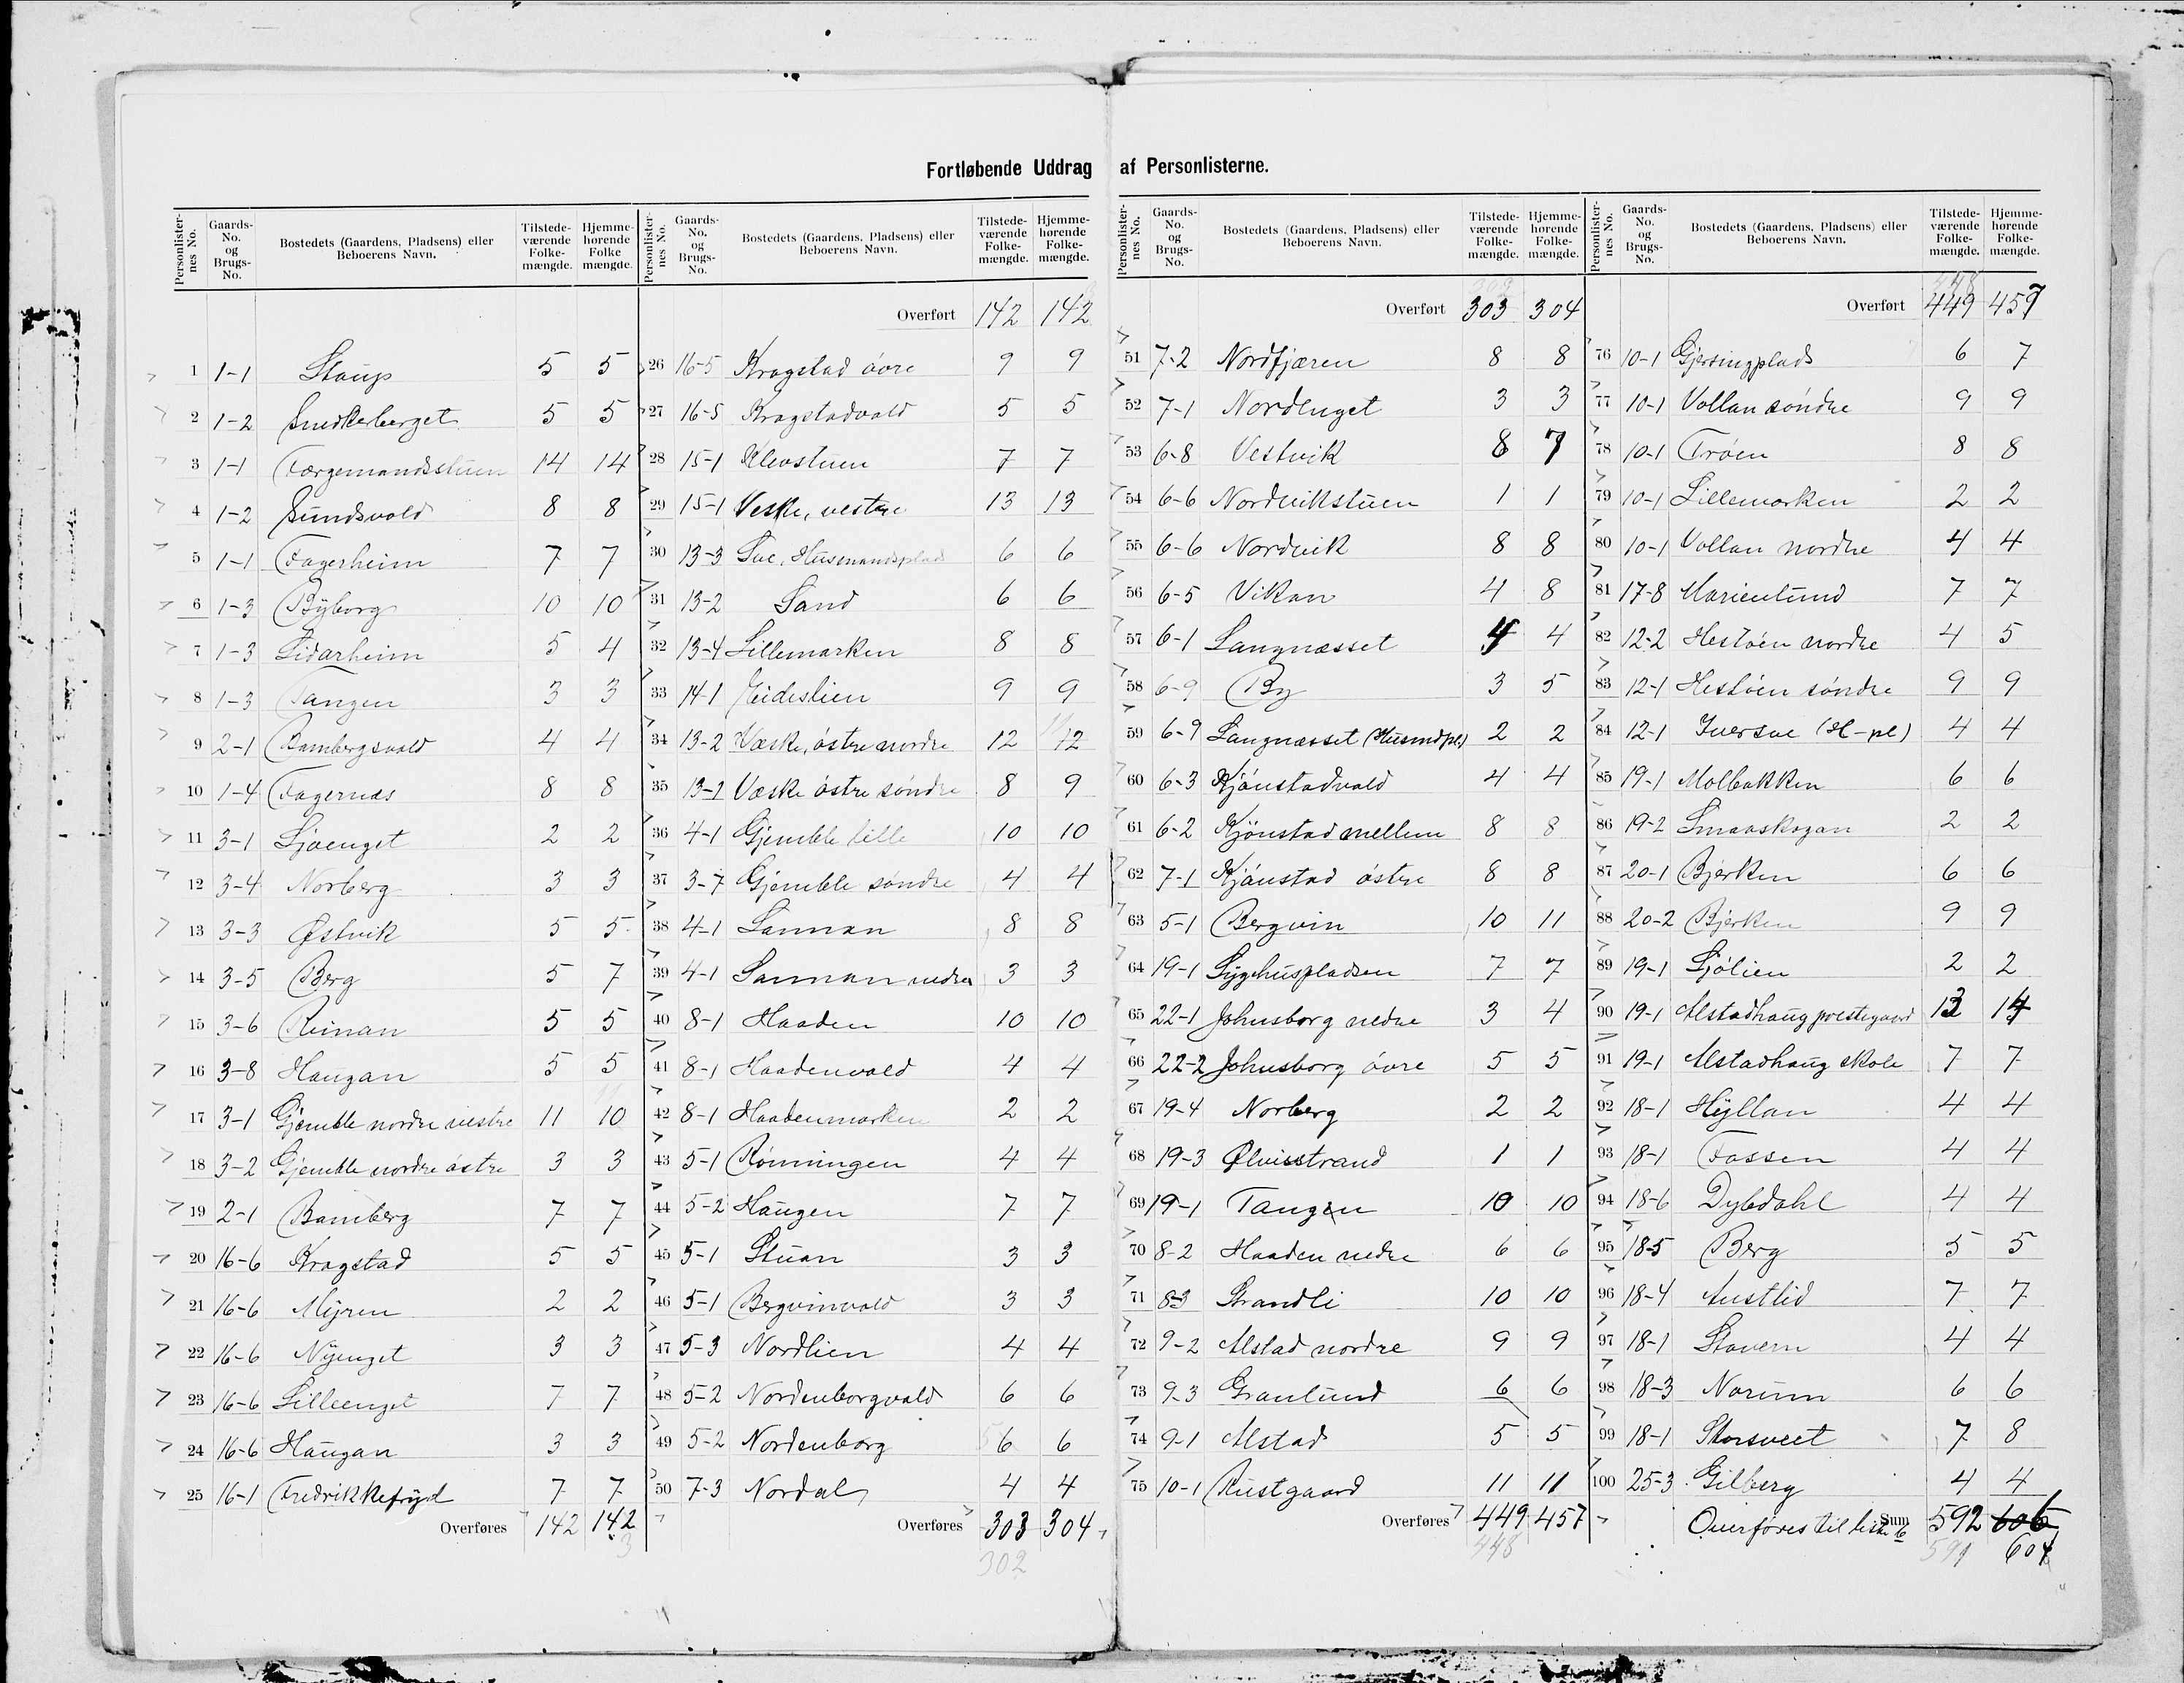 Fortløbende Uddrag af Personlisterne.
Personlister-nes No. Gaards-No. og Brugs-No. Bostedets (Gaardens, Pladsens) eller Beboerens Navn. Tilstede-værende Folke-mængde. Hjemme-hørende Folke mængde.
1 1-1 Staup 5 5
2 1-2 Snekkerberget 5 5
3 1-1 Færgemandsstuen 14 14
4 1-2 Sundsvald 8 8
5 1-1 Fagerheim 7 7
6 1-3 Byborg 10 10
7 1-3 Lidarheim 5 4
8 1-3 Tangen 3 3
9 2-1 Bambergsvald 4 4
10 1-4 Fagernæs 8 8
11 3-1 Sjøenget 2 2
12 3-4 Norberg 3 3
13 3-3 Østvik 5 5
14 3-5 Berg 5 7
15 3-6 Reinan 5 5
16 3-8 Haugan 5 5
17 3-1 Gjemble nordre vestre 11 10
18 3-2 Gjemble nordre østre 3 3
19 2-1 Bamberg 7 7
20 16-6 Kragstad 5 5
21 16-6 Myren 2 2
22 16-6 Nyenget 3 3
23 16-6 Lilleenget 7 7
24 16-6 Haugan 3 3
25 16-1 Fredrikkefryd 7 7
Overføres 142 142
3
Personlister-nes No. Gaards-No. og Brugs-No. Bostedets (Gaardens, Pladsens) eller Beboerens Navn. Tilstede-værende Folke-mængde. Hjemme-hørende Folke-mængde.
Overført 142 142
26 16-5 Kragstad øvre 9 9
27 16-5 Kragstadvald 5 5
28 15-1 Klevstuen 7 7
29 15-1 Veske, vestre 13 13
30 13-3 Sve, Husmandsplads 6 6
31 13-2 Sand 6 6
32 13-4 Lillemarken 8 8
33 14-1 Eideslien 9 9
34 13-2 Væske, østre nordre 12 12
35 13-1 Væske østre søndre 8 9
36 4-1 Gjemble lille 10 10
37 3-7 Gjemble søndre 4 4
38 4-1 Sannan 8 8
39 4-1 Sannan nedre 3 3
40 8-1 Haaden 10 10
41 8-1 Haadenvald 4 4
42 8-1 Haadenmarken 2 2
43 5-1 Rønningen 4 4
44 5-2 Haugen 7 7
45 5-1 Stuan 3 3
46 5-1 Bergvinvald 3 3
47 5-3 Nordlien 4 4
48 5-2 Nordenborgvald 6 6
49 5-2 Nordenborg 6 6
50 7-3 Nordal 4 4
Overføres 303 304
302
Personlister-nes No. Gaards-No. og Brugs-No. Bostedets (Gaardens, Pladsens) eller Beboerens Navn. Tilstede-værende Folke-mængde. Hjemme-hørende Folke-mængde.
302
Overført 303 304
51 7-2 Nordfjæren 8 8
52 7-1 Nordenget 3 3
53 6-8 Vestvik 8 7
54 6-6 Nordvikstuen 1 1
55 6-6 Nordvik 8 8
56 6-5 Vikan 4 8
57 6-1 Langnæsset 4 4
58 6-9 By 3 5
59 6-9 Langnæsset (Husmdpl.) 2 2
60 6-3 Kjønstadvald 4 4
61 6-2 Kjønstad mellem 8 8
62 7-1 Kjønstad østre 8 8
63 5-1 Bergvin 10 11
64 19-1 Sygehuspladsen 7 7
65 22-1 Johnsborg nedre 3 4
66 22-2 Johnsborg øvre 5 5
67 19-4 Norberg 2 2
68 19-3 Ølvisstrand 1 1
69 19-1 Tangen 10 10
70 8-2 Haaden nedre 6 6
71 8-3 Strandli 10 10
72 9-2 Alstad nordre 9 9
73 9-3 Granlund 6 6
74 9-1 Alstad 5 5
75 10-1 Rustgaard 11 11
Overføres 449 457
448
Personlister-nes No. Gaards-No. og Brugs-No. Bostedets (Gaardens, Pladsens) eller Beboerens Navn. Tilstede-værende Folke-mængde. Hjemme-hørende Folke-mængde.
448
Overført 449 457
76 10-1 Gjersingplads 6 7
77 10-1 Vollan søndre 9 9
78 10-1 Trøen 8 8
79 10-1 Lillemarken 2 2
80 10-1 Vollan nordre 4 4
81 17-8 Marienlund 7 7
82 12-2 Hestøen nordre 4 5
83 12-1 Hestøen søndre 9 9
84 12-1 Iversve (H-pl) 4 4
85 19-1 Molbakken 6 6
86 19-2 Smaaskogan 2 2
87 20-1 Bjerken 6 6
88 20-2 Bjerken 9 9
89 19-1 Sjølien 2 2
90 19-1 Alstadhaug prestegaard 13 14
91 19-1 Alstadhaug skole 7 7
92 18-1 Hyllan 4 4
93 18-1 Fossen 4 4
94 18-6 Dybdahl 4 4
95 18-5 Berg 5 5
96 18-4 Austlid 7 7
97 18-1 Stavern 4 4
98 18-3 Norum 6 6
99 18-1 Storsveet 7 8
100 25-3 Gilberg 4 4
Overføres til liste 6 Sum 592 606
591 604